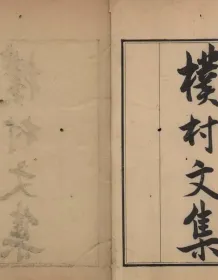 樸村文集